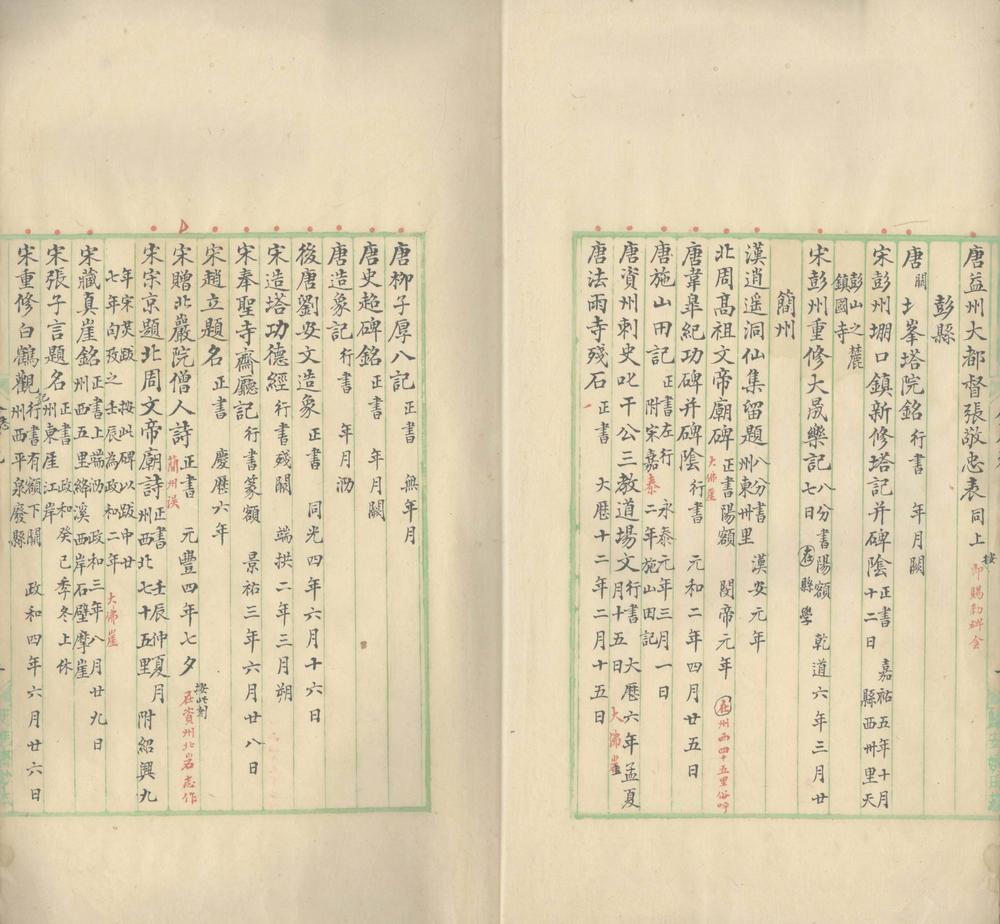 唐益州大都督張敬忠表同上按即賜勅碑全
彭縣
唐關北峯塔院銘行書年月闕
宋彭州堋口鎮新修塔記并碑陰正書嘉祐五年十月十二日縣西卅里天
彭山之麓鎮國寺
宋彭州重修大晟樂記八分書陽額乾道六年三月廿七日在縣學
簡州
漢逍遥洞仙集留題八分書漢安元年州東卅里
北周高祖文帝廟碑正書陽額閔帝元年在州西四十五里俗呼大佛崖
唐韋皐紀功碑并碑陰行書元和二年四月廿五日
唐施山田記正書左行永泰元年三月一日附宋嘉泰二年施山田記
唐資州刺史叱干公三教道場文行書大厯六年孟夏月十五日大佛崖
唐法雨寺殘石正書大厯十二年二月十五日
唐柳子厚八記正書無年月
唐史趍碑銘正書年月闕
唐造象記行書年月泐
後唐劉安文造象正書同光四年六月十六日
宋造塔功德經行書殘闕端拱二年三月朔
宋奉聖寺齋廳記行書篆額景祐三年六月廿八日
宋趙立題名正書慶厯六年
宋贈北巖院僧人詩正書元豐四年七夕簡州誤按此刻在資州北岩志作
宋宗京題北周文帝廟詩正書壬辰仲夏月州西北七十五里附紹興九
年宋英跋按此碑以跋中廿七年向攷之壬辰為政和二年大佛崖
宋藏真崖銘正書上端泐政和三年八月廿九日州西五里絳溪西岸石壁摩崖
宋張子言題名正書政和癸巳季冬上休州東崖江岸
宋重修白鶴觀記行書有額下闕政和四年六月廿六日州西平泉廢縣